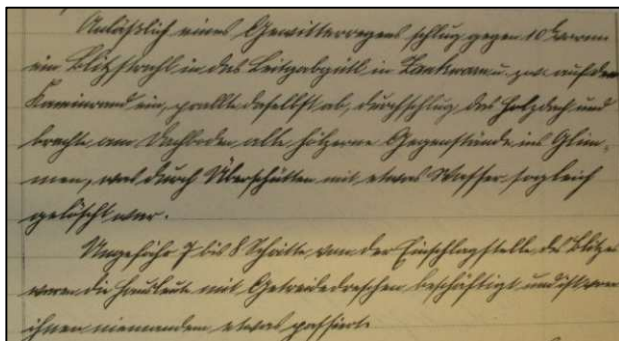 Anläßlich eines Gewitterregens schlug gegen 10h vorm
ein Blitzstrahl in das Leitgabgütl in u. zw. auf den
Kaminrand ein, prallte daselbst ab, durchschlug das Holzdach und
brachte am Dachboden alte hölzerne Gegenstände ins Glim-
men, was durch Überschütten mit etwas Wasser sogleich
gelöscht war.
Ungefähr 7 bis 8 Schritte von der Einschlagstelle des Blitzes
waren die Hausleute mit Getreidedreschen beschäftigt und ist von
ihnen niemandem etwas passiert.